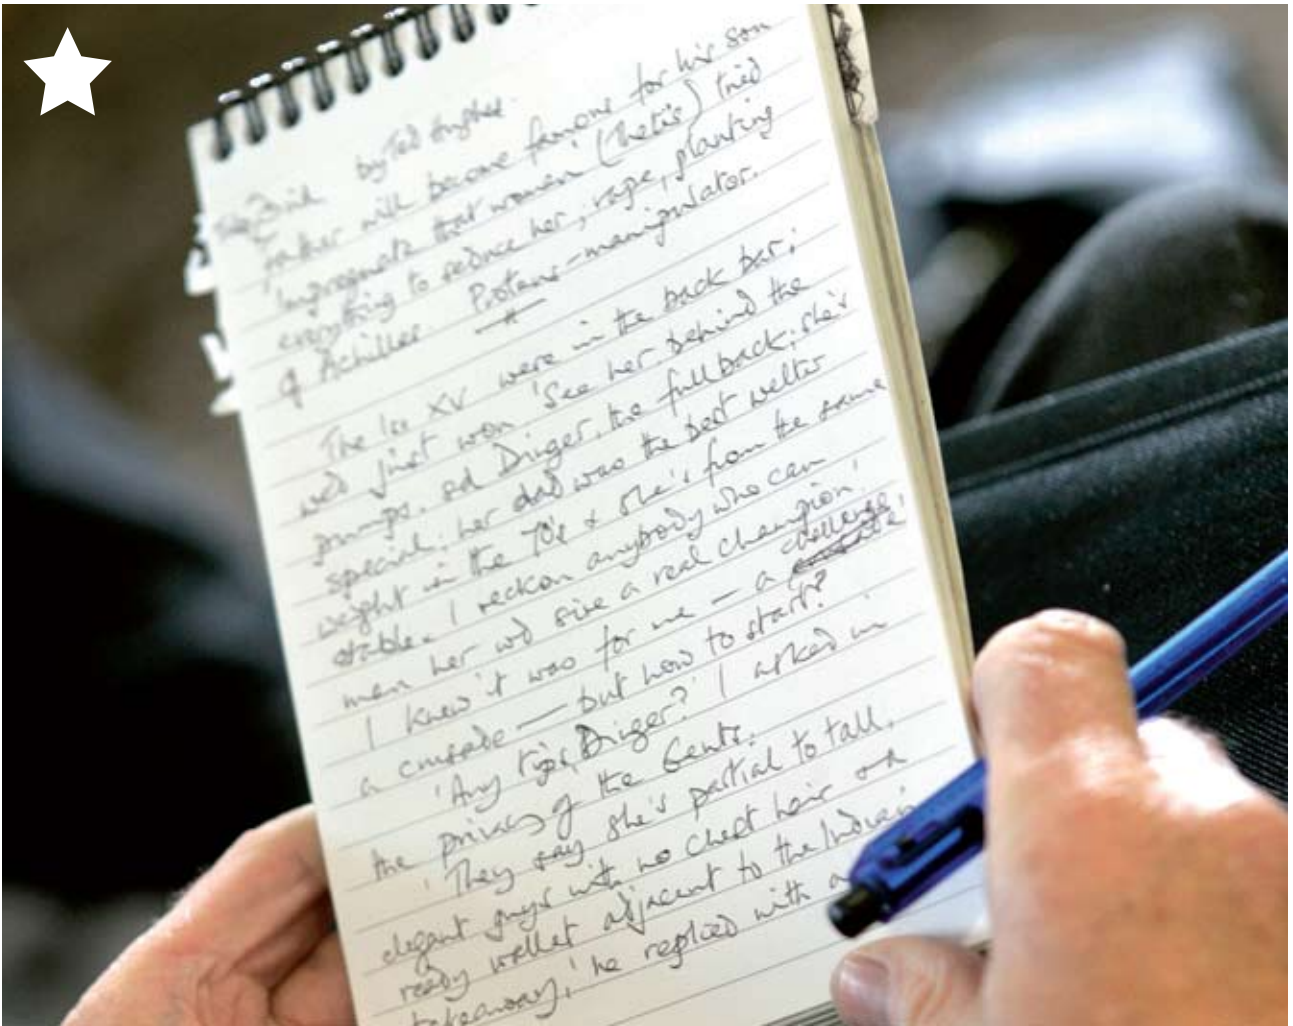 Ovid by Ted Hughes
Father will become famous for his son
impregnate that woman (Thetis) tried
everything to seduce her; rape, planting
of Achilles Proteus – manipulator.
The 1st XV were in the back bar;
we'd just won 'See her behind the
pumps, sd Dinger, the fullback; she's
special; her dad was the best welter
weight in the 70's & she's from the same
stable. I reckon anybody who can
man her wd sire a real champion.'
I knew it was for me – a challenge,
a crusade – but how to start?
'Any tips, Dinger?' I asked in
the privacy of the Gents.
'They say she's partial to tall,
elegant guys with no chest hair and a
ready wallet adjacent to the Indian
takeaway,' he replied with a